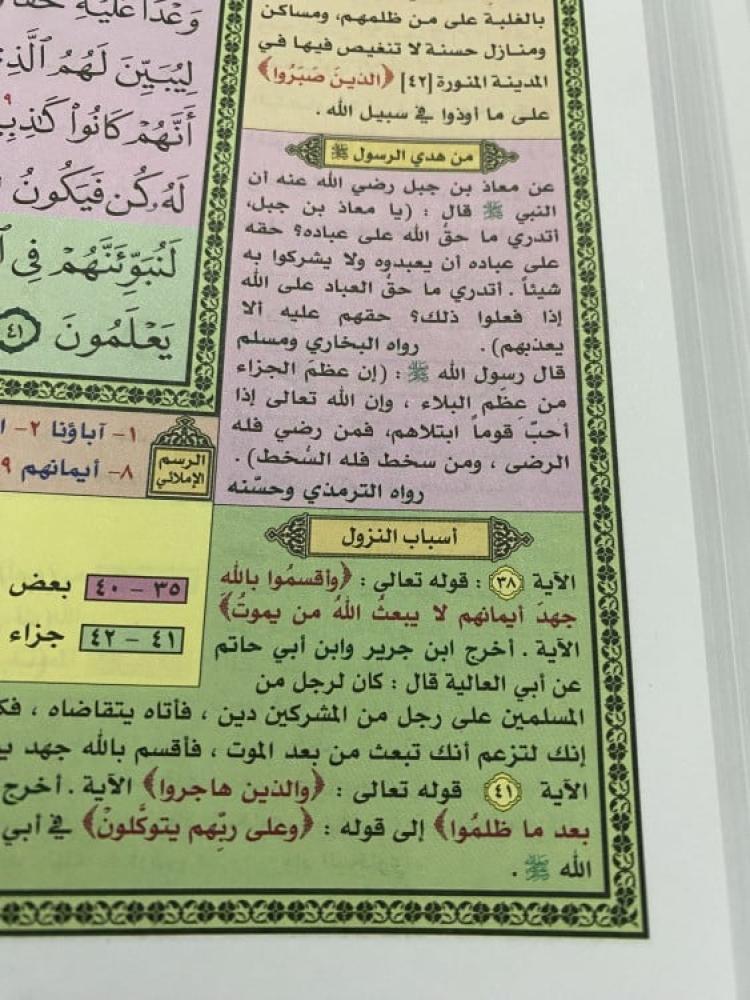 بالغلبة على من ظلمهم، ومساكن
ومنازل حسنة لا تنغيص فيها في
المدينة المنورة [٤٢] ﴿الذين صَبَرُوا﴾
على ما أوذوا في سبيل الله .
من هدي الرسول ﷺ
عن معاذ بن جبل رضي الله عنه أن
النبي ﷺ قال : (يا معاذ بن جبل،
أتدري ما حقُّ الله على عباده؟ حقه
على عباده أن يعبدوه ولا يشركوا به
شيئاً . أتدري ما حقُّ العباد على الله
إذا فعلوا ذلك؟ حقهم عليه ألا
يعذبهم) . رواه البخاري ومسلم
قال رسول الله ﷺ : (إن عظمَ الجزاء
من عظم البلاء ، وإن الله تعالى إذا
أحبَّ قوماً ابتلاهم، فمن رضي فله
الرضى ، ومن سخط فله السُّخط) .
رواه الترمذي وحسّنه
أسباب النزول
الآية ٣٨ : قوله تعالى : ﴿وأقسمُوا بالله
جهدَ أيمانهم لا يبعثُ اللهُ من يموتُ﴾
الآية . أخرج ابن جرير وابن أبي حاتم
عن أبي العالية قال : كان لرجل من
المسلمين على رجل من المشركين دين ، فأتاه يتقاضاه ،
إنك لتزعم أنك تبعث من بعد الموت ، فأقسم بالله جهد
الآية ٤١ قوله تعالى : ﴿والذين هاجروا﴾ الآية . أخرج
بعد ما ظلمُوا﴾ إلى قوله : ﴿وعلى ربّهم يتوكَّلونَ﴾ في أبي
الله ﷺ .
وَعْدًا عَلَيْهِ
لِيُبَيِّنَ لَهُمُ ٱلَّذِي
أَنَّهُمْ كَانُوا۟ كَٰذِبِ
لَهُۥ كُن فَيَكُونُ
لَنُبَوِّئَنَّهُمْ فِى
يَعْلَمُونَ ٤١
الرسم
الإملائي
١- آباؤنا ٢-
٨- أيمانهم ٩
٣٥ – ٤٠ بعض
٤١ – ٤٢ جزاء